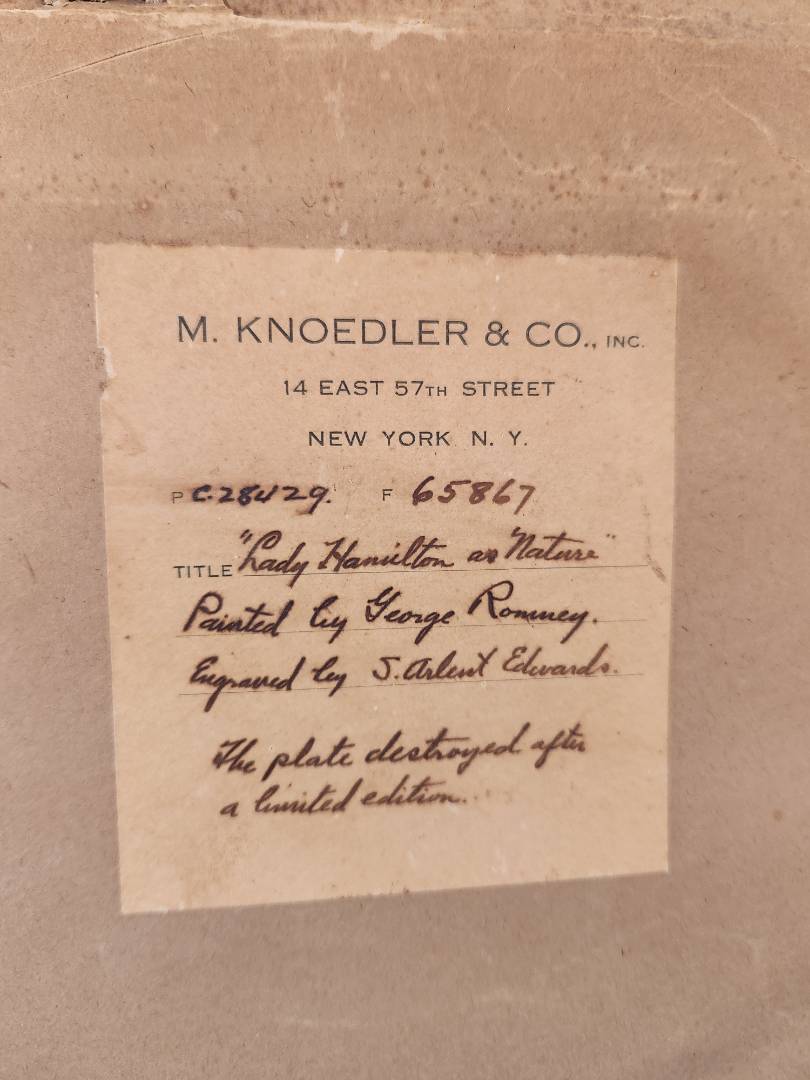 M. KNOEDLER & CO., INC.
14 EAST 57TH STREET
NEW YORK N. Y.
P C.28429. F 65867
TITLE "Lady Hamilton as "Nature"
Painted by George Romney.
Engraved by S. Arlent Edwards.
The plate destroyed after
a limited edition.